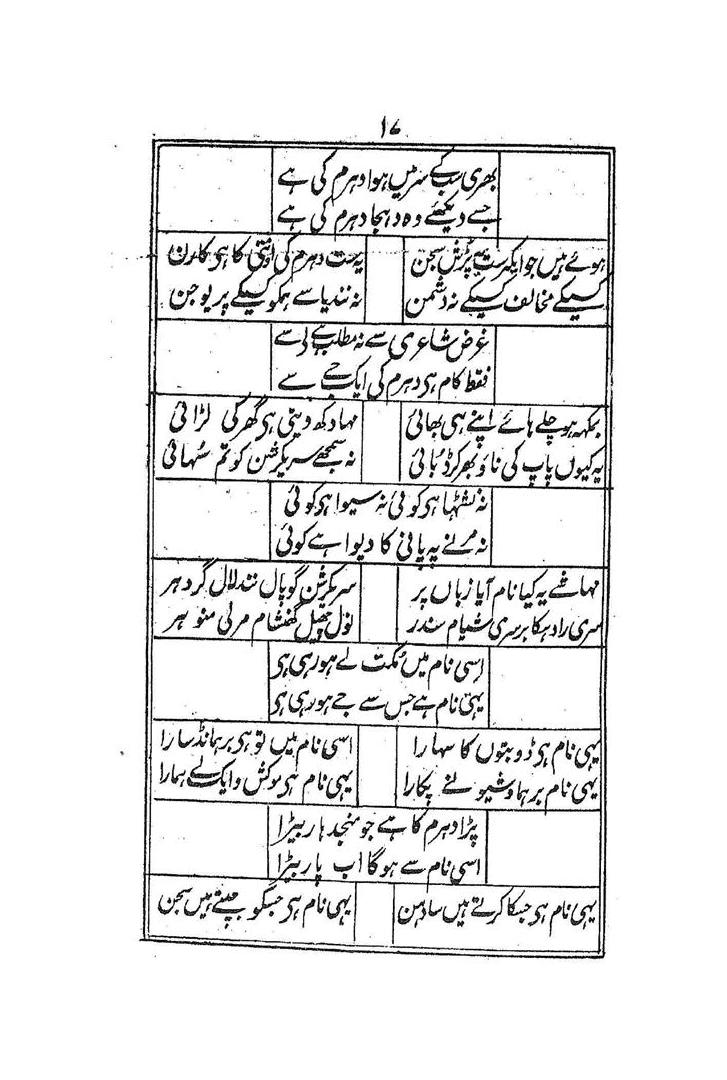 ۱۷
بھری سب کے سر میں ہوا دہرم کی ہے
جسے دیکھئے وہ دہجا دہرم کی ہے
ہوئے ہیں جو ایکترت یہ پُرش سجن یہ ست دہرم کی اونتی کا ہی کارن
کسیکے مخالف کسیکے نہ دشمن نہ نندیا سے ہمکو کسیکے پریوجن
غرض شاعری سے نہ مطلب ہے لَے سے
فقط کام ہی دہرم کی ایک جے سے
بمکہہ ہو چلے ہائے اپنے ہی بھائی مہا دکھ دیتی ہی گھر کی لڑائی
یہ کیوں پاپ کی ناؤ بھر کر ڈبائی نہ سمجھے سریکرشن کو تم سہائی
نہ نشٹہا ہی کوئی نہ سیوا ہی کوئی
نہ مرنے پہ پانی کا دیوا ہے کوئی
مہاشے یہ کیا نام آیا زباں پر سریکرشن گوپال نندلال گردہر
سری رادہکا بر سری شیام سندر نول چھیل گھنشام مرلی منوہر
اِسی نام میں مُکت لے ہو رہی ہی
یہی نام ہے جس سے جے ہو رہی ہی
یہی نام ہی ڈوبتوں کا سہارا اسی نام میں تو ہی برہمانڈ سارا
یہی نام برہما و شیو نے پکارا یہی نام ہی موکش دایک ہمارا
پڑا دہرم کا ہے جو منجدہار بیڑا
اسی نام سے ہوگا اب پار بیڑا
یہی نام ہی جسکا کرتے ہیں سادہن یہی نام ہی جسکو جپتے ہیں سجن